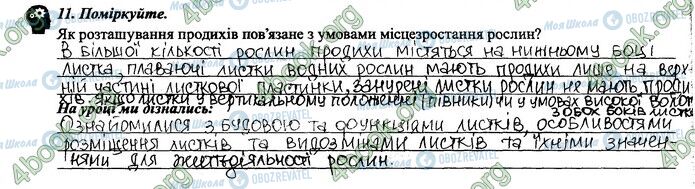 11. Поміркуйте.
Як розташування продихів пов'язане з умовами місцезростання рослин?
В більшої кількості рослин продихи містяться на нижньому боці
листка, плаваючі листки водних рослин мають продихи лише на верх-
ній частині листкової пластинки, занурені листки рослин не мають проди-
хів. якщо листки у вертикальному положенні (півники) чи у умовах високої волог
На уроці ми дізнались: з обох боків листк
Ознайомилися з будовою та функціями листків, особливостями
розміщення листків та видозмінами листків та їхніми значен-
нями для життєдіяльності рослин.